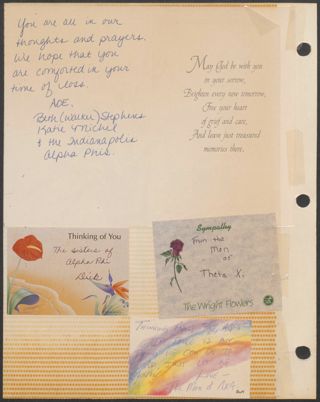 You are all in our
thoughts and prayers.
We hope that you
are comforted in your
time of loss.
AOE,
Beth (Walker) Stephens
Katie Michel
& the Indianapolis
Alpha Phis.
May God be with you
in your sorrow,
Brighten every new tomorrow,
Free your heart
of grief and care,
And leave just treasured
memories there.
Thinking of You
The sisters of
Alpha Phi
Dick
Sympathy
From the
Men
of
Theta X.
The Wright Flowers
Thinking